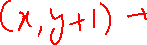 (x, y+1) →